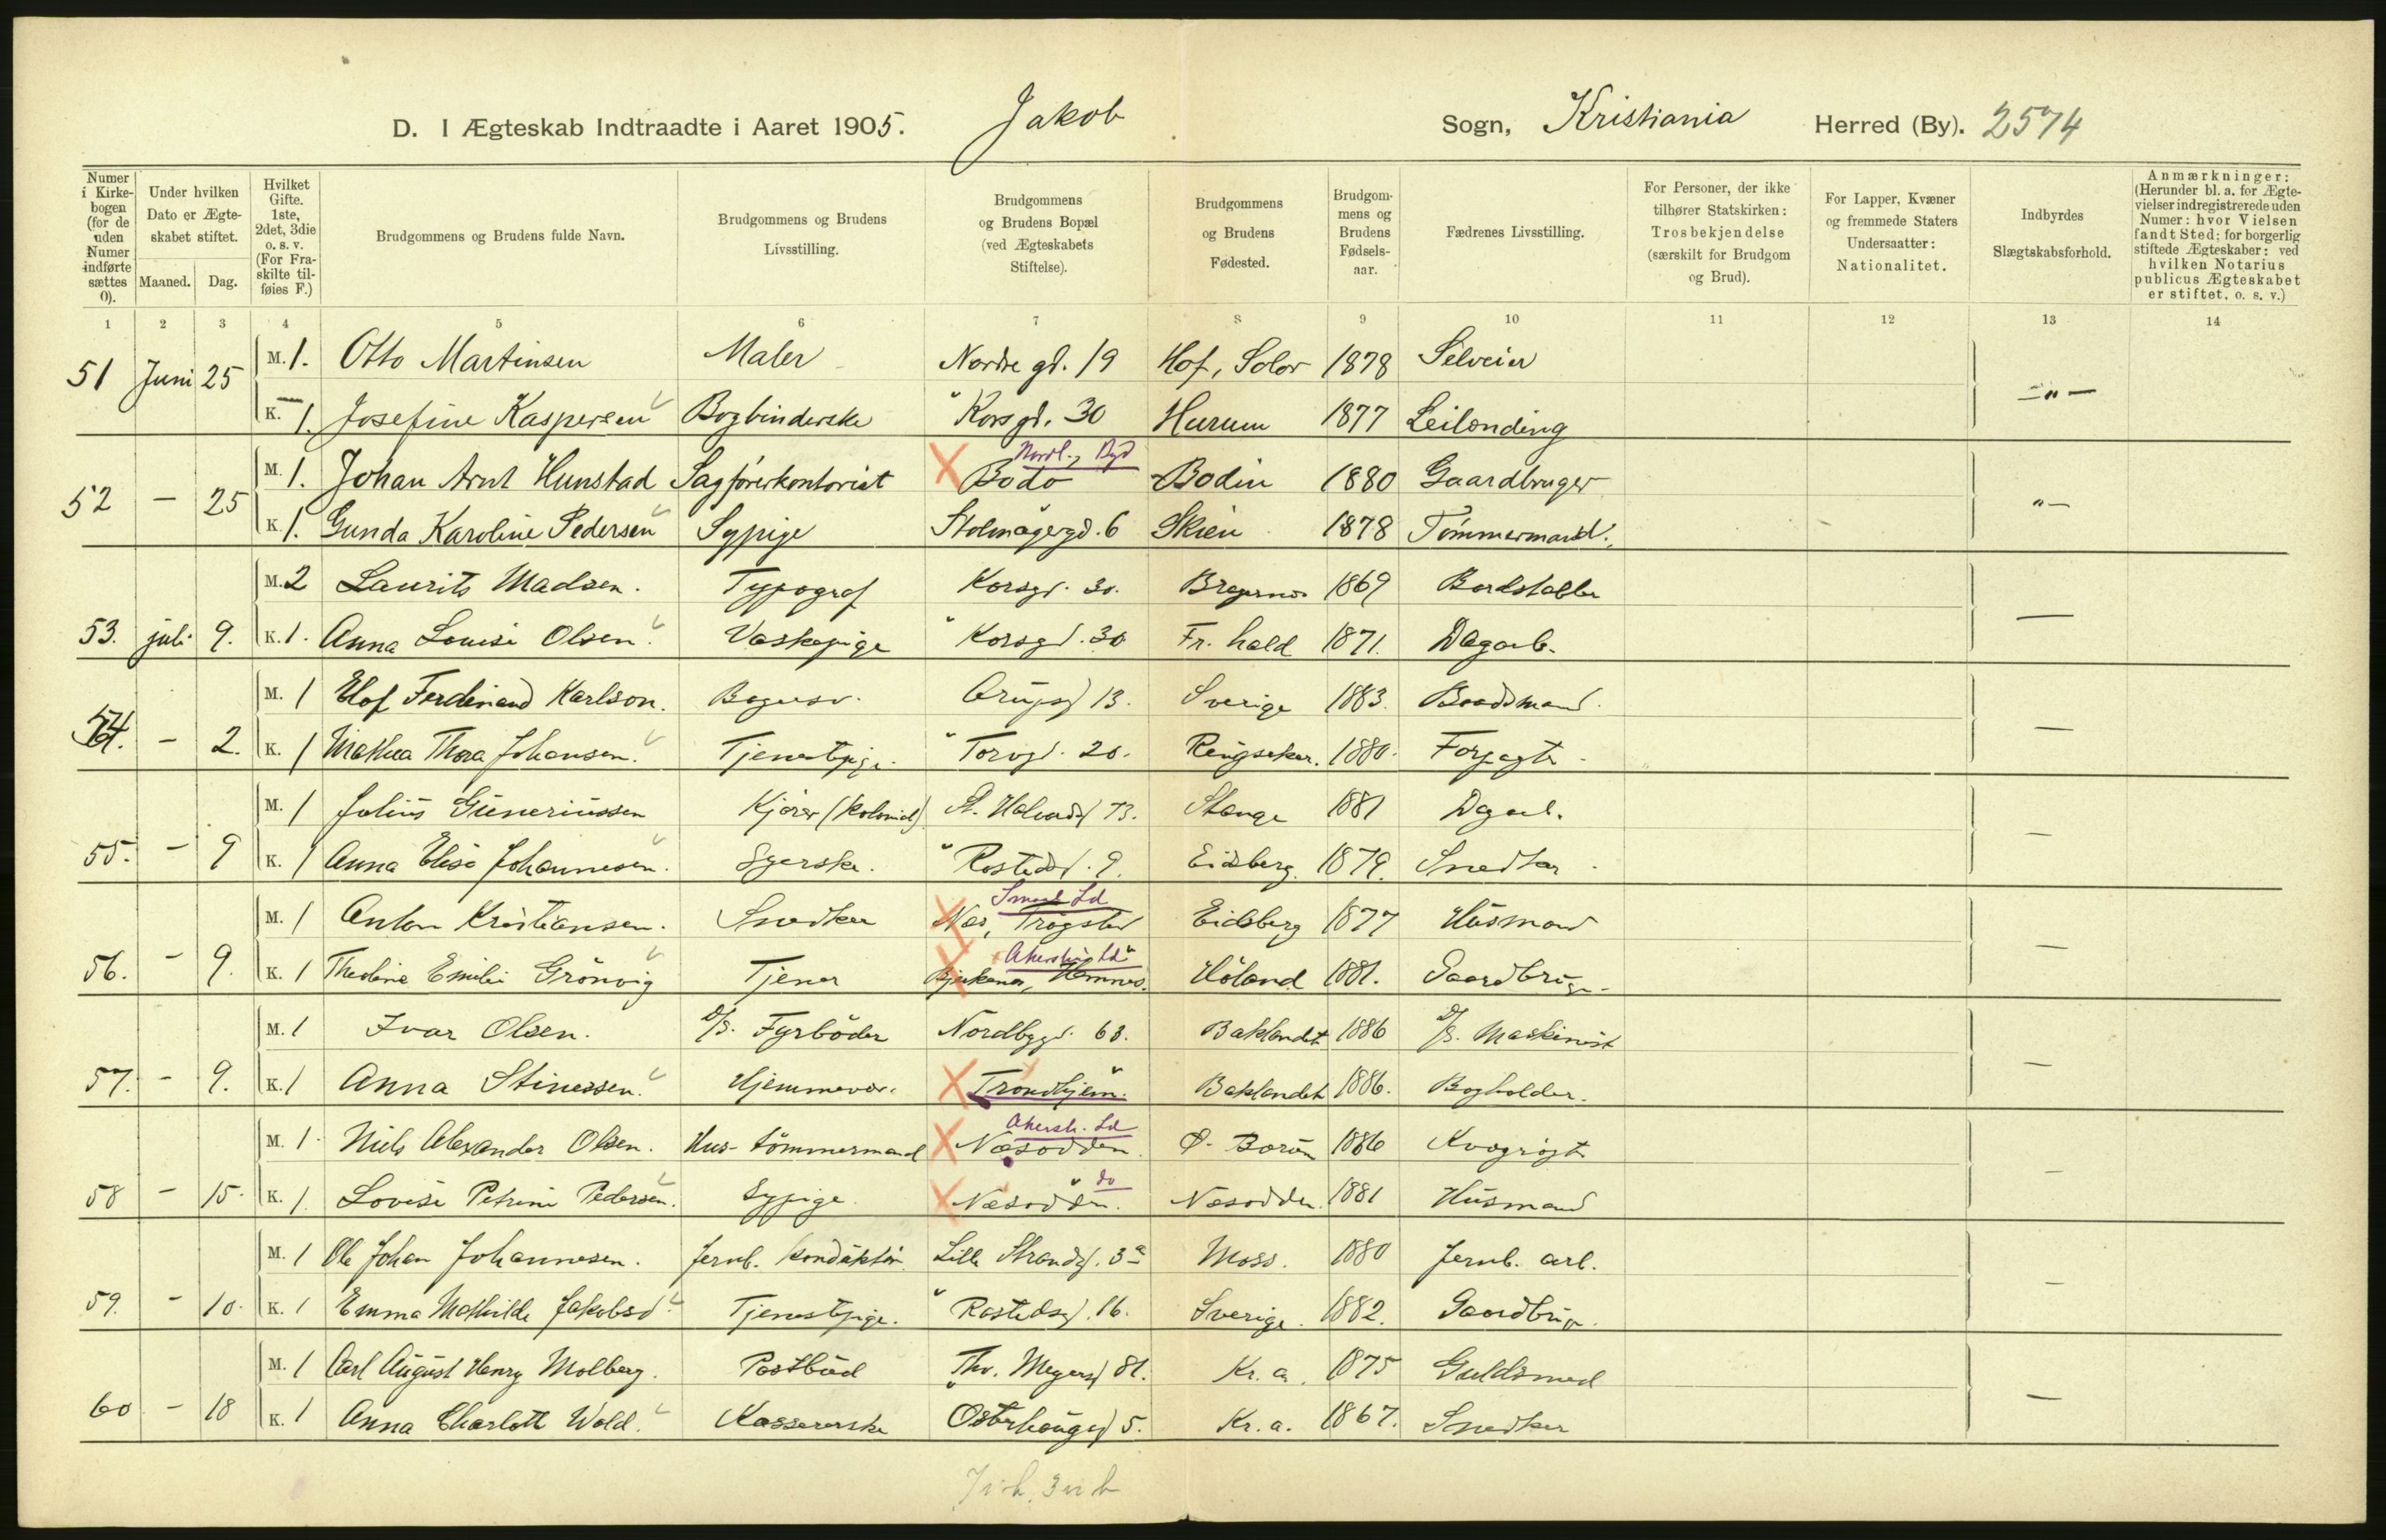 D. I Ægteskab Indtraadte i Aaret 1905. Jakob Sogn, Kristiania Herred (By). 2574
Numer i Kirkebogen (for de uden Numer indførte sættes 0).
Under hvilken Dato er Ægteskabet stiftet.
Maaned. Dag.
Hvilket Gifte. 1ste, 2det, 3die o. s. v. (For Fraskilte tilføies F.)
Brudgommens og Brudens fulde Navn.
Brudgommens og Brudens Livsstilling.
Brudgommens og Brudens Bopæl (ved Ægteskabets Stiftelse).
Brudgommens og Brudens Fødested.
Brudgommens og Brudens Fødselsaar.
Fædrenes Livsstilling.
For Personer, der ikke tilhører Statskirken: Trosbekjendelse (særskilt for Brudgom og Brud).
For Lapper, Kvæner og fremmede Staters Undersaatter: Nationalitet.
Indbyrdes Slægtskabsforhold.
Anmærkninger: (Herunder bl. a. for Ægtevielser indregistrerede uden Numer: hvor Vielsen fandt Sted; for borgerlig stiftede Ægteskaber: ved hvilken Notarius publicus Ægteskabet er stiftet, o. s. v.)
1 2 3 4 5 6 7 8 9 10 11 12 13 14
M. 1. Otto Martinsen Maler Nordre gd. 19 Hof, Solør 1878 Selveier
51 Juni 25 K. 1. Josefine Kaspersen Bogbinderske " Korsgd. 30 Hurum 1877 Leilending — " —
Nordl.,
M. 1. Johan Arnt Hunstad Sagførerkontorist Bodø Bodin 1880 Gaardbruger
52 — 25 K. 1. Gunda Karoline Pedersen Sypige Stolmagergd. 6 Skien 1878 Tømmermand. " —
M. 2 Laurits Madsen. Typograf Korsgd. 30. Bragernes 1869 Bordstabler
53. juli 9. K. 1. Anna Louise Olsen. Vaskepige " Korsgd. 30 Fr. hald 1871. Dagarb. —
M. 1 Elof Ferdinand Karlson. Bagersv. 13. Sverige 1883. Baadsmand.
54. — 2. K. 1 Mathea Thora Johansen. Tjenestpige. " Torvgd. 20. Ringsaker. 1880. Forpagter. —
M. 1 Julius Gueneriussen Kjører (kolonial) St. Halvardsgd 73. Stange 1881 Dagarb.
55. — 9 K. 1 Anna Elise Johannesen. Syerske. " Rostedsgd. 9. Eidsberg. 1879. Snedker. —
Smaal. Ld
M. 1 Anton Kristiansen. Snedker Næs, Trøgstad Eidsberg 1877 Husmand
Akershus Ld
56. — 9. K. 1 Theoline Emilie Grønvig Tjener Hemnes. Høland 1881. Gaardbrug. —
M. 1 Ivar Olsen. D/S. Fyrbøder Nordbygd. 63. Baklandet 1886 D/S. Maskinist
57. — 9. K. 1 Anna Stinessen. Hjemmevær. " Trondhjem. Baklandet 1886. Bogholder. —
Akersh. Ld
M. 1. Niels Alexander Olsen. Hus-tømmermand Næsodden. 1886 Kvægrøgter
58 — 15. K. 1. Lovise Petrine Pedersen. Sypige. " do Næsodden. Næsodden. 1881 Husmand —
M. 1 Ole Johan Johannesen. Jernb. konduktør. Lille Strandgd. 3a Moss. 1880 Jernb. arb.
59. — 10. K. 1 Emma Mathilde Jakobsd. Tjenestpige. " Rostedsgd. 16. Sverige. 1882. Gaardbrug. —
M. 1 Carl August Henry Molberg. Postbud Thv. Meyersgd 81. Kr. a. 1875 Guldsmed
60 — 18 K. 1 Anna Charlotte Wold. Kassererske " Osterhausgd 5. Kr. a. 1867. Snedker —